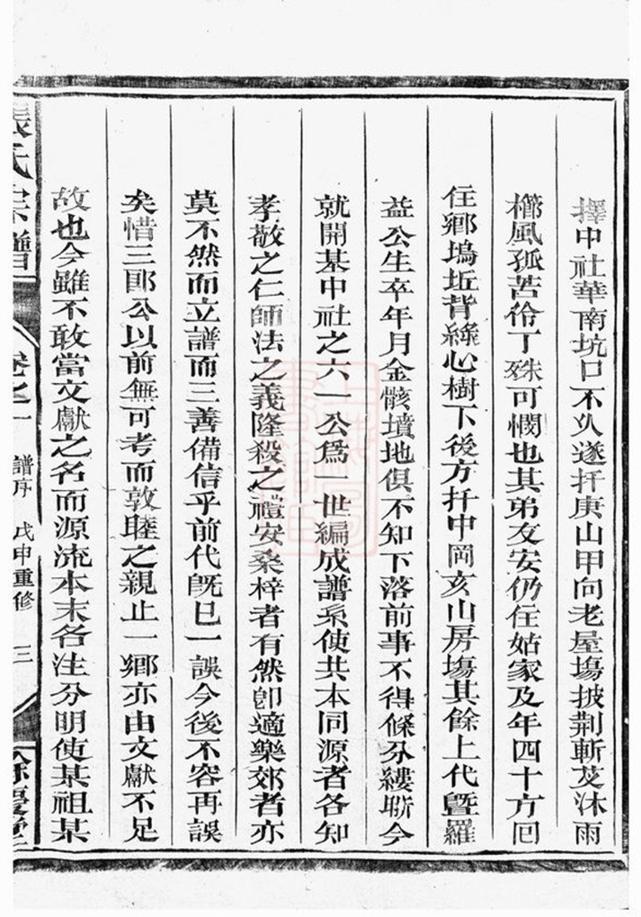 擇中社華南坑口不久遂扦庚山甲向老屋塲披荆斬芨沐雨
櫛風孤苦伶丁殊可憫也其弟友安仍住姑家及年四十方囘
住鄉塢坵背綠心樹下後方扦中岡亥山房塲其餘上代曁羅
益公生卒年月金骸墳地俱不知下落前事不得條分縷聨今
就開基中社之六一公爲一世編成譜系使共本同源者各知
孝敬之仁師法之義隆殺之禮安桑梓者有然卽適樂郊者亦
莫不然而立譜而三善備信乎前代旣已一誤今後不容再誤
矣惜三郎公以前無可考而敦睦之親止一鄉亦由文獻不足
故也今雖不敢當文獻之名而源流本末各注分明使某祖某
張氏宗譜 卷之一 譜序 戊申重修 三